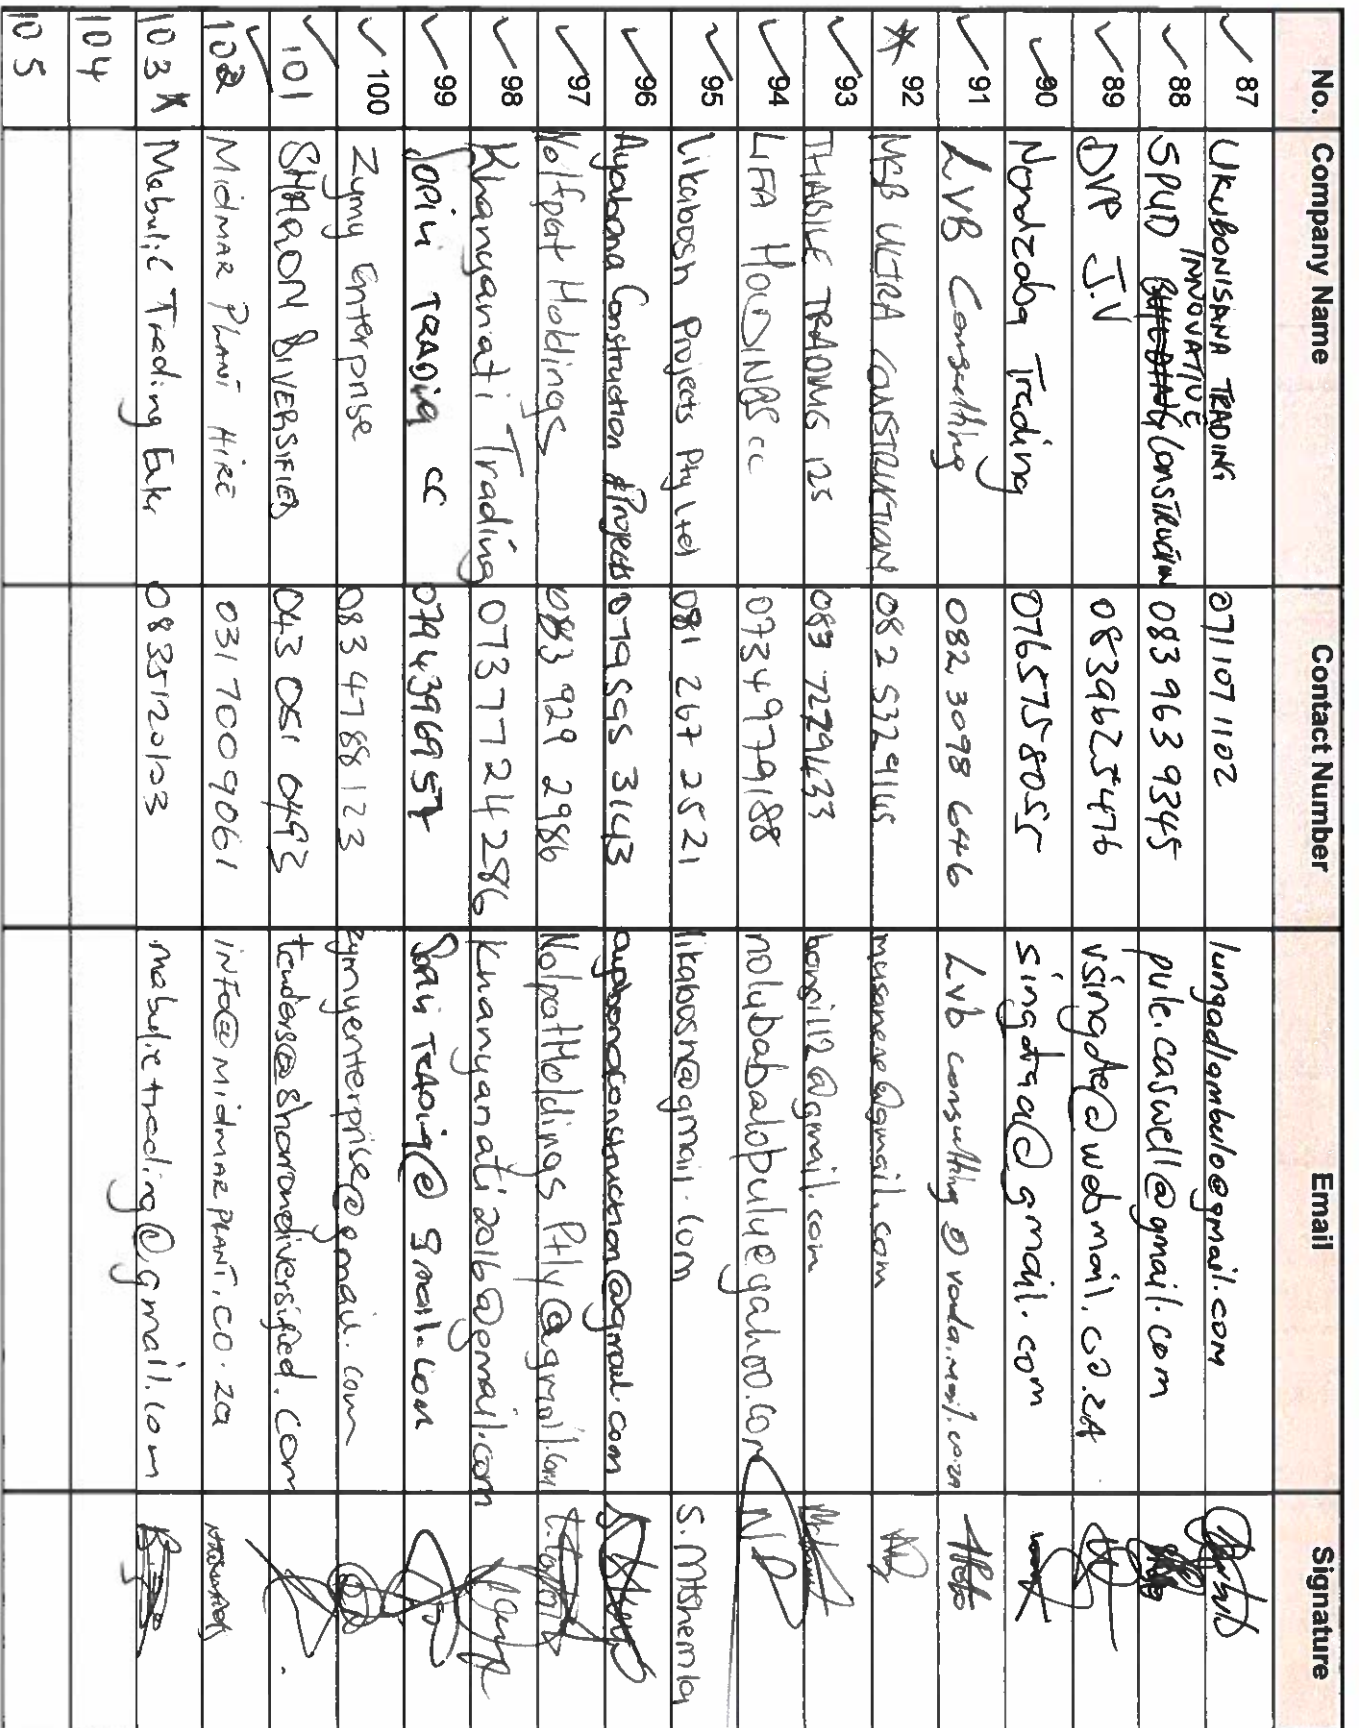 No. Company Name Contact Number Email Signature
✓ 87 UKUBONISANA TRADING 0711071102 lungadlambulo@gmail.com
INNOVATIVE
✓ 88 SPUD CONSTRUCTION 083 963 9345 pule.caswell@gmail.com
✓ 89 DVP J.V 0839625476 vsingde@webmail.co.za
✓ 90 Nondzaba Trading 0765758055 singataa@gmail.com
✓ 91 LVB Consulting 082 3098 646 Lvb consulting @ vodamail.co.za
* 92 MSB ULTRA CONSTRUCTION 082 532 9145 musanene@gmail.com
✓ 93 THABILE TRADING 125 083 7279433 bongill2@gmail.com
✓ 94 LIFA HOLDINGS cc 0734979188 nolubabalobulu@yahoo.com N.D
✓ 95 Likabosh Projects Pty Ltd 081 267 2521 likabosh@gmail.com S. Mtshemla
✓ 96 Ayabona Construction & Projects 079 595 3143 ayabonaconstruction@gmail.com
✓ 97 Nolfpat Holdings 083 929 2986 NolpatHoldings Ptly@gmail.com
✓ 98 Khanyanati Trading 0737724286 Khanyanati2016@gmail.com
✓ 99 SORIN TRADING CC 0794396957
✓ 100 Zymy Enterprise 083 4788123 zymyenterprise@gmail.com
✓ 101 SHARON DIVERSIFIED 043 051 0493 tenders@sharondiversified.com
✓ 102 MIDMAR PLANT HIRE 031 7009061 info@midmarplant.co.za
103 * Mabulic Trading 0835120123 mabulictrading@gmail.com
104
105